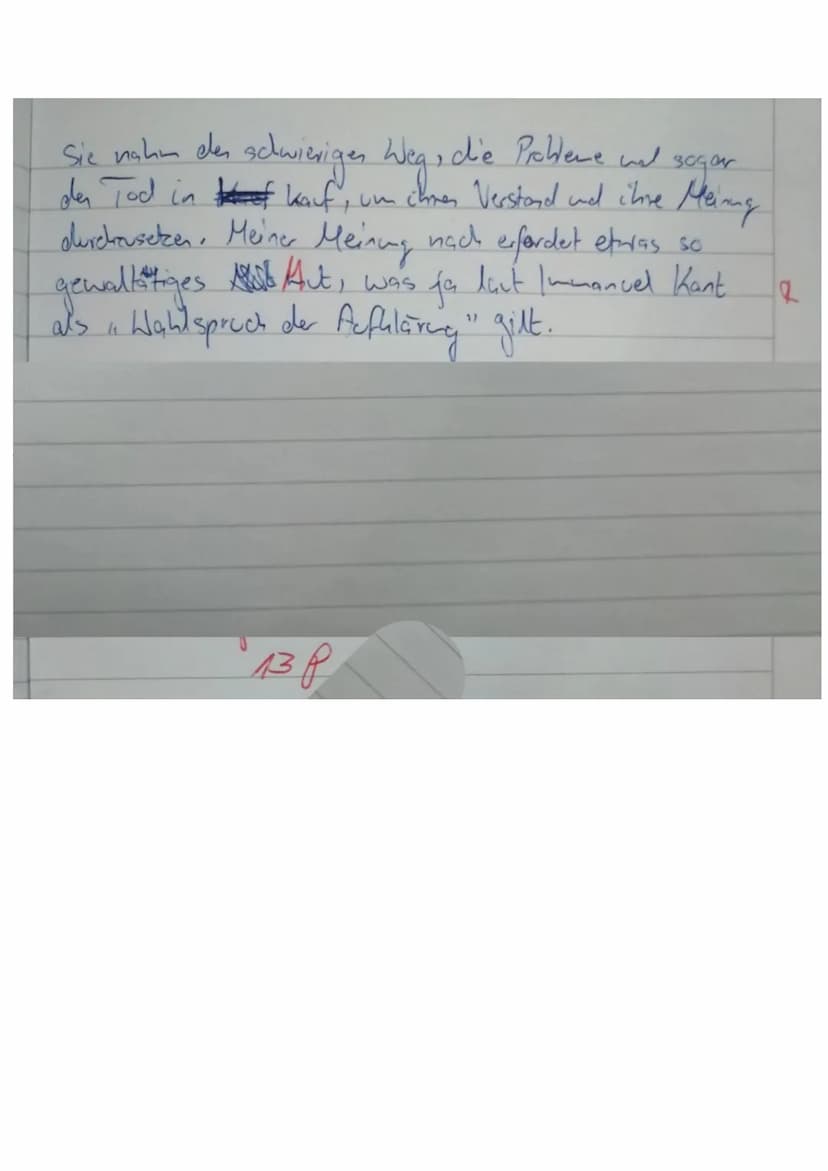 Sie nahm den schwierigen Weg, die Probleme und sogar
den Tod in Kauf, um ihren Verstand und ihre Meinung
durchzusetzen. Meiner Meinung nach erfordert etwas so
gewalttätiges Mut, was ja laut Immanuel Kant
als „Wahlspruch der Aufklärung" gilt.
13 P